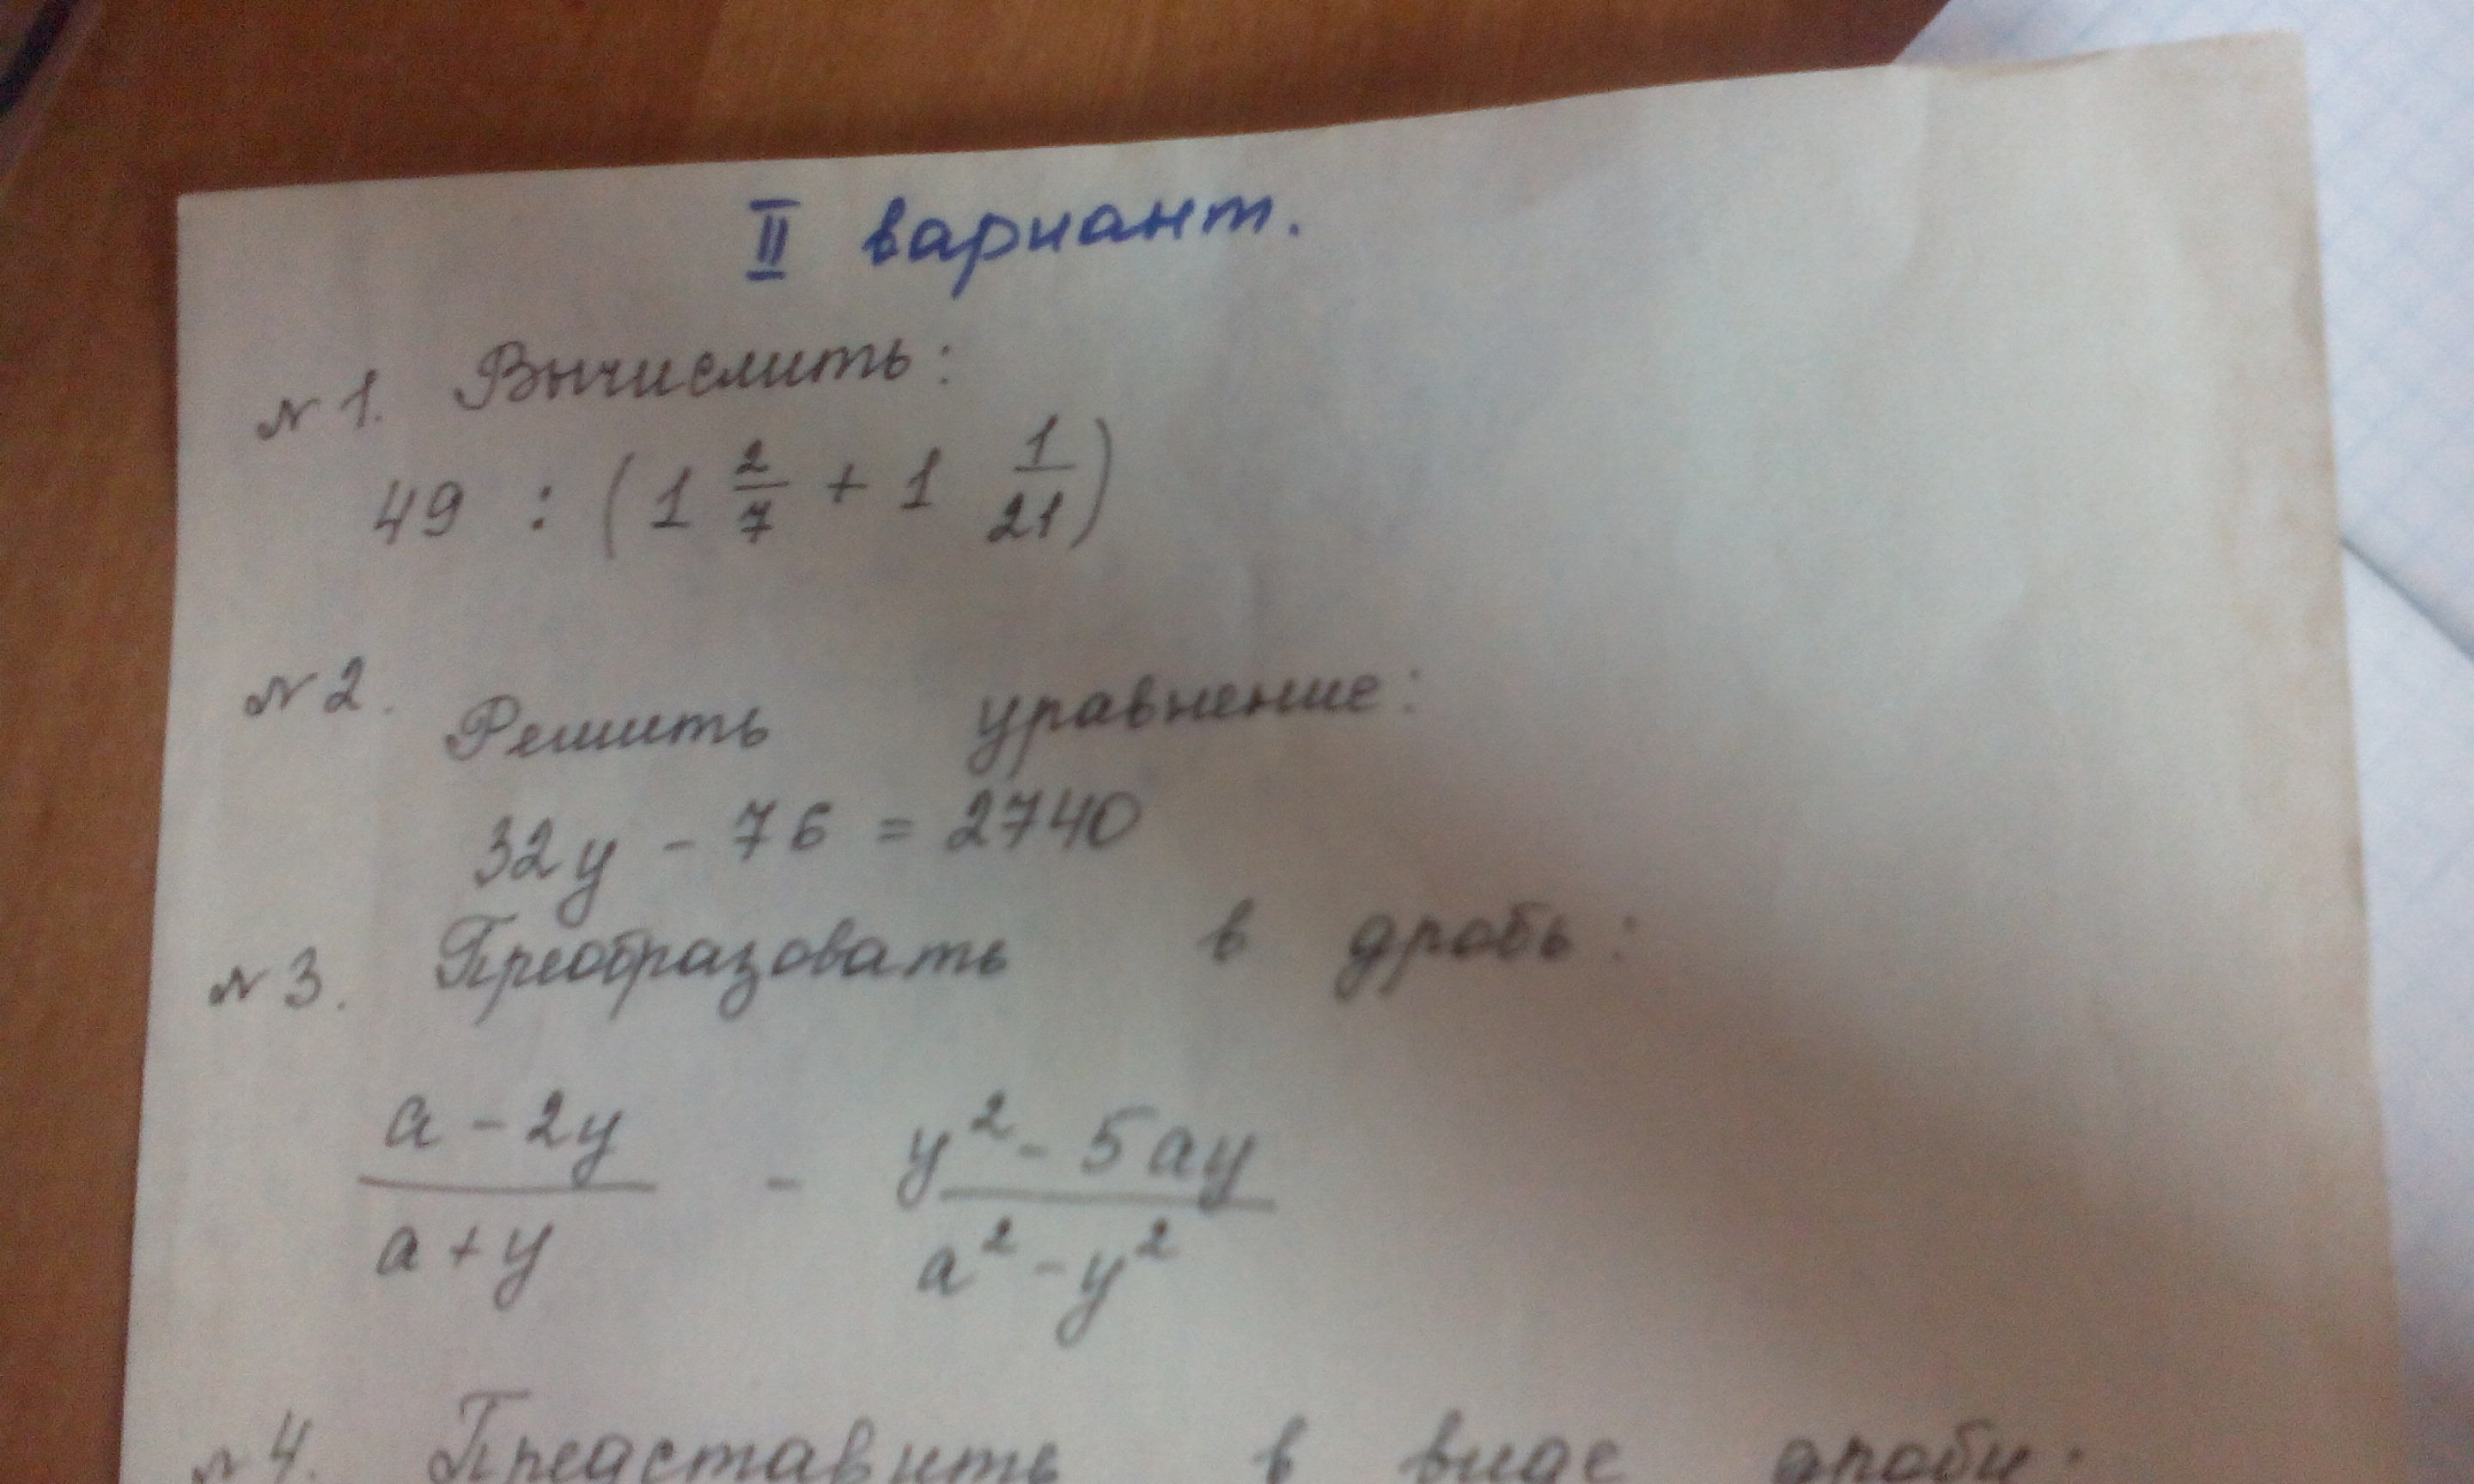 II вариант.
№1. Вычислить:
49 : (1 2/7 + 1 1/21)
№2. Решить уравнение:
32y - 76 = 2740
№3. Преобразовать в дробь:
a - 2y / a + y - y² - 5ay / a² - y²
№4. Представить в виде дроби: